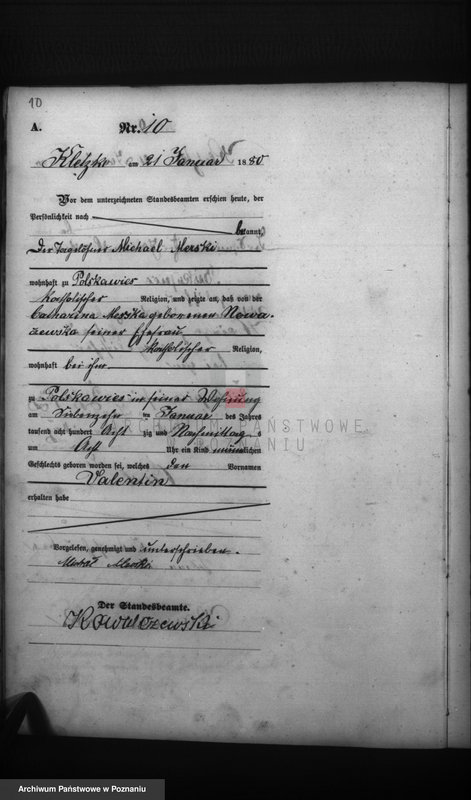 10
A. Nr. 10
Kletzko am 21 Januar 1880
Vor dem unterzeichneten Standesbeamten erschien heute, der
Persönlichkeit nach
bekannt,
Der Tagelöhner Michael Merski
wohnhaft zu Polskawies
katholischer Religion, und zeigte an, daß von der
Catharina Merska geborenen Nowa-
czewska seiner Ehefrau
katholischer Religion,
wohnhaft bei ihm
zu Polskawies in seiner Wohnung
am Siebenzehn ten Januar des Jahres
tausend acht hundert Acht zig und Nachmittag s
um Acht Uhr ein Kind männlichen
Geschlechts geboren worden sei, welches den Vornamen
Valentin
erhalten habe
Vorgelesen, genehmigt und unterschrieben.
Merski
Der Standesbeamte.
Kowalczewski
ARCHIWUM PAŃSTWOWE
W POZNANIU
Archiwum Państwowe w Poznaniu